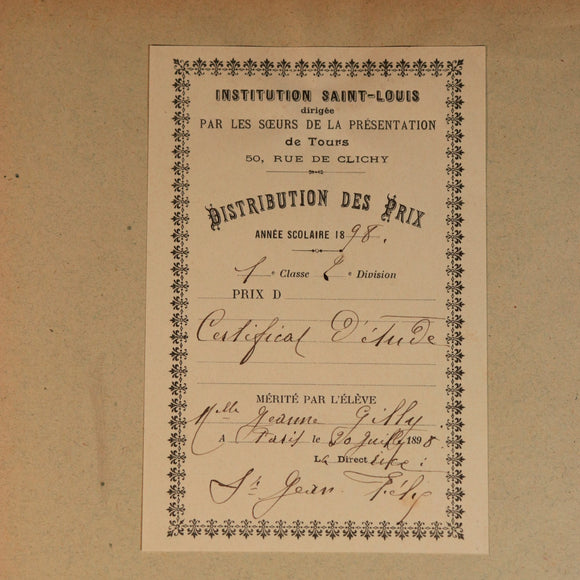 INSTITUTION SAINT-LOUIS
dirigée
PAR LES SŒURS DE LA PRÉSENTATION
de Tours
50, RUE DE CLICHY
DISTRIBUTION DES PRIX
ANNÉE SCOLAIRE 1898.
1e Classe 2e Division
PRIX D
Certificat D'étude
MÉRITÉ PAR L'ÉLÈVE
Mlle Jeanne Gilly
A Paris le 1898
La Directrice :
Sr Jean